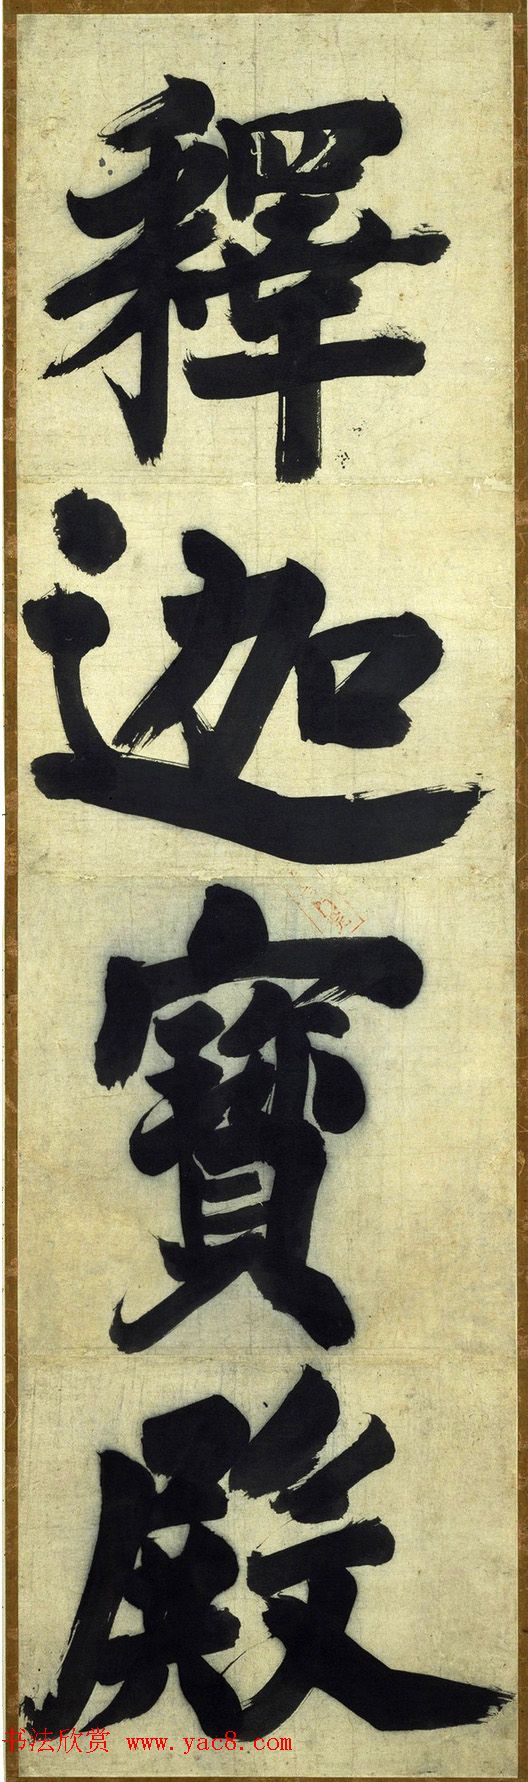 釋迦寶殿
书法欣赏 www.yac8.com